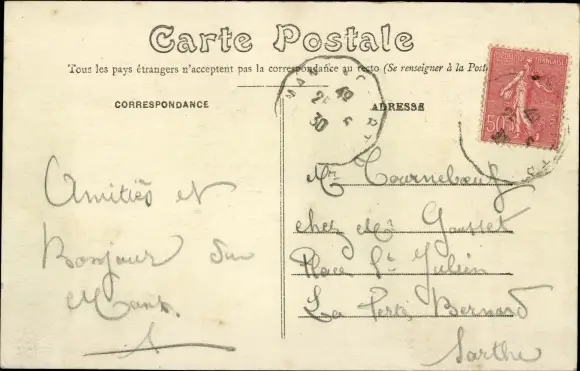 Carte Postale
Tous les pays étrangers n'acceptent pas la correspondance au recto (Se renseigner à la Poste
CORRESPONDANCE
ADRESSE
Amitiés et
Bonjour du
Mans.
Mr Tournebœuf
chez Mr Gousset
Place St Julien
La Ferté Bernard
Sarthe
50c
30